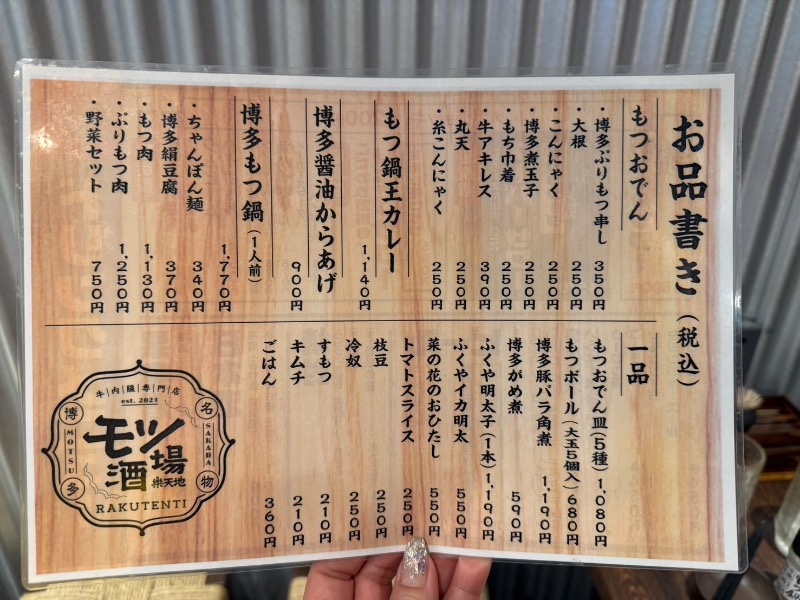 お品書き（税込）
もつおでん
・博多ぶりもつ串し 350円
・大根 250円
・こんにゃく 250円
・博多煮玉子 250円
・もち巾着 250円
・牛アキレス 390円
・丸天 250円
・糸こんにゃく 250円
もつ鍋王カレー
1,140円
博多醤油からあげ
900円
博多もつ鍋（1人前）
1,770円
・ちゃんぽん麺 340円
・博多絹豆腐 370円
・もつ肉 1,130円
・ぶりもつ肉 1,250円
・野菜セット 750円
一品
もつおでん皿（5種）1,080円
もつボール（大玉5個入）680円
博多豚バラ角煮 1,190円
博多がめ煮 590円
ふくや明太子（1本）1,190円
ふくやイカ明太 550円
菜の花のおひたし 550円
トマトスライス 250円
枝豆 250円
冷奴 250円
すもつ 210円
キムチ 210円
ごはん 360円
牛|内|臓|専|門|店
est. 2021
博多
名物
MOTSU
SAKABA
モツ酒場
楽天地
RAKUTENTI